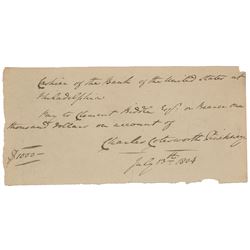 Cashier of the Bank of the United States at
Philadelphia
Pay to Clement Biddle Esqr. or Bearer one
thousand dollars on account of
Charles Cotesworth Pinckney
$1000
July 13th 1804